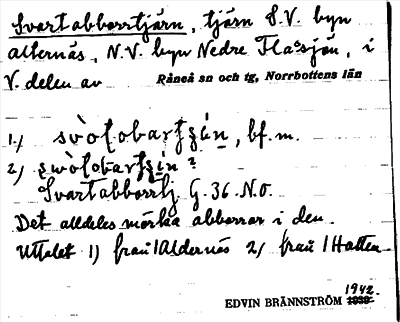 Svartabborrtjärn, tjärn S.V. byn
alternäs, N.V. byn Nedre Flasjön, i
V. delen av Råneå sn och tg, Norrbottens län
1.)
, bf.m.
2)
Svartabborrtj G. 36. N.O.
Det alldeles mörka abborrar i den.
Uttalet 1) från 1 Aldernäs 2) från 1 Hatten
1942.
EDVIN BRÄNNSTRÖM 1939.